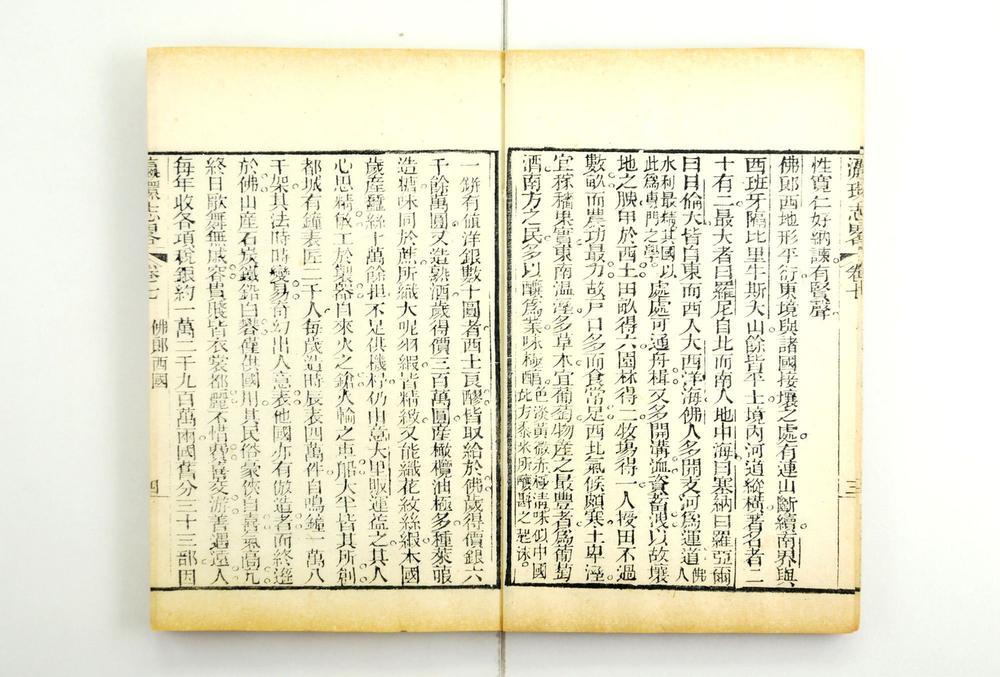 瀛環志畧 卷七 三
性寬仁好納諫有賢聲
佛郎西地形平衍東境與諸國接壤之處有連山斷續南界與
西班牙隔比里牛斯大山餘皆平土境內河道縱橫著名者二
十有二最大者曰羅尼自北而南入地中海曰塞納曰羅亞爾
曰日倫大皆自東而西入大西洋海佛人多開支河爲運道佛人
水利最精其國以此爲專門之學處處可通舟楫又多開溝洫資蓄洩以故壤
地之腴甲於西土田畝得六園林得二牧場得一人授田不過
數畝而農功最力故戶口多而食常足西北氣候頗寒土卑溼
宜秫稌東南溫煖多草木宜葡萄物產之最豐者爲葡萄
酒南方之民多以釀爲業味極醇色淡黃微赤極淸味似中國北方黍米所釀謂之
一餅有值洋銀數十圓者西土良醪皆取給於佛歲得價銀六
千餘萬圓又造熟酒歲得價三百萬圓產橄欖油極多種萊菔
造糖味同於蔗所織大呢羽緞皆精緻又能織花紋絲緞本國
歲產蠶絲十萬餘担不足供機杼仍由意大里販運益之其人
心思精敏工於製器自來火之鎗火輪之車船大半皆其所創
都城有鐘表匠二千人每歲造時辰表四萬件自鳴鐘一萬八
千架其法時時變易奇幻出人意表他國亦有倣造者而終遜
於佛山產石炭鐵鉛白礬僅供國用其民俗豪俠自喜氣高亢
終日歌舞無戚容貴賤皆衣裳都麗不惜費喜交游善遇遠人
每年收各項稅銀約一萬二千九百萬兩國舊分三十三部因
瀛環志畧 卷七 佛郎西國 四